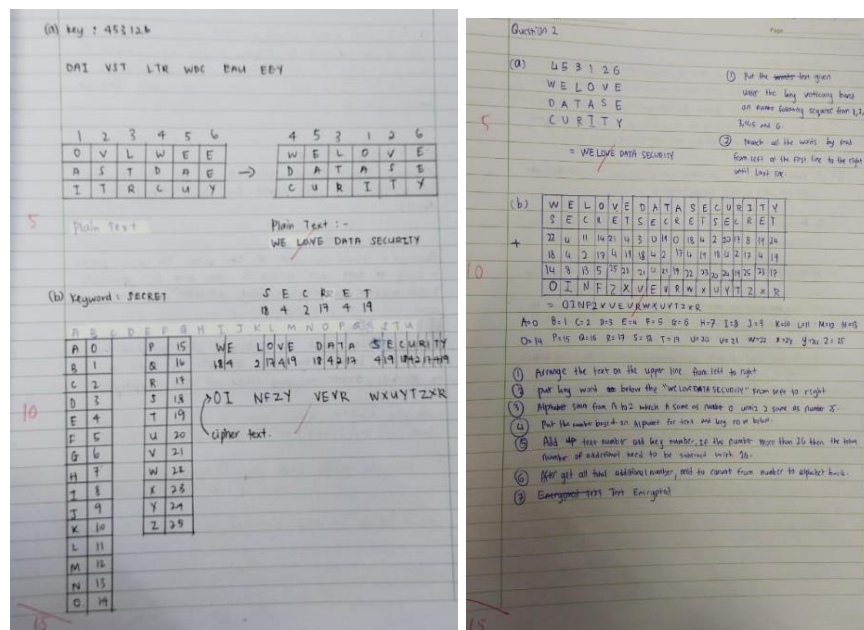 (a) key : 453126
OAI VST LTR WDC EAU EEY
1 2 3 4 5 6
O V L W E E
A S T D A E
I T R C U Y
→
4 5 3 1 2 6
W E L O V E
D A T A S E
C U R I T Y
5
Plain Text
Plain Text :-
WE LOVE DATA SECURITY
(b) Keyword : SECRET
S E C R E T
18 4 2 17 4 19
A B C D E F G H I J K L M N O P Q R S T U
A 0 P 15 WE LOVE DATA SECURITY
B 1 Q 16 18 4 2 17 4 19 18 4 2 17 4 19 18 4 2 17 4 19
C 2 R 17
D 3 S 18 OI NFZY VEVR WXUYTZXR
E 4 T 19
10
F 5 U 20 cipher text.
G 6 V 21
H 7 W 22
I 8 X 23
J 9 Y 24
K 10 Z 25
L 11
M 12
N 13
O 14
15
Question 2
(a) 4 5 3 1 2 6
W E L O V E
D A T A S E
C U R I T Y
5
= WE LOVE DATA SECURITY
① Put the text given
under the key vertically based
on number following sequence from 1, 2,
3, 4, 5 and 6.
② all the words by read
from left of the first line to the right
until last
(b) W E L O V E D A T A S E C U R I T Y
S E C R E T S E C R E T S E C R E T
+ 22 4 11 14 21 4 3 0 19 0 18 4 2 20 17 8 19 24
18 4 2 17 4 19 18 4 2 17 4 19 18 4 2 17 4 19
10
O I N F Z X V E V R W X U Y T Z X R
= OINFZXVEVRWXUYTZXR
A=0 B=1 C=2 D=3 E=4 F=5 G=6 H=7 I=8 J=9 K=10 L=11 M=12 N=13
O=14 P=15 Q=16 R=17 S=18 T=19 U=20 V=21 W=22 X=23 Y=24 Z=25
① Arrange the text on the upper line from left to right
② put key word below the "WE LOVE DATA SECURITY" from left to right
③ Alphabet from A to Z which A same as number 0 until Z same as number 25.
④ Put the number based on Alphabet for text and key row below.
⑤ Add up text number and key number, if the number more than 26 then the total
number of additional need to be subtract with 26.
⑥ After get all total additional number, need to convert from number to alphabet back.
⑦ Encrypted text Text Encrypted
15